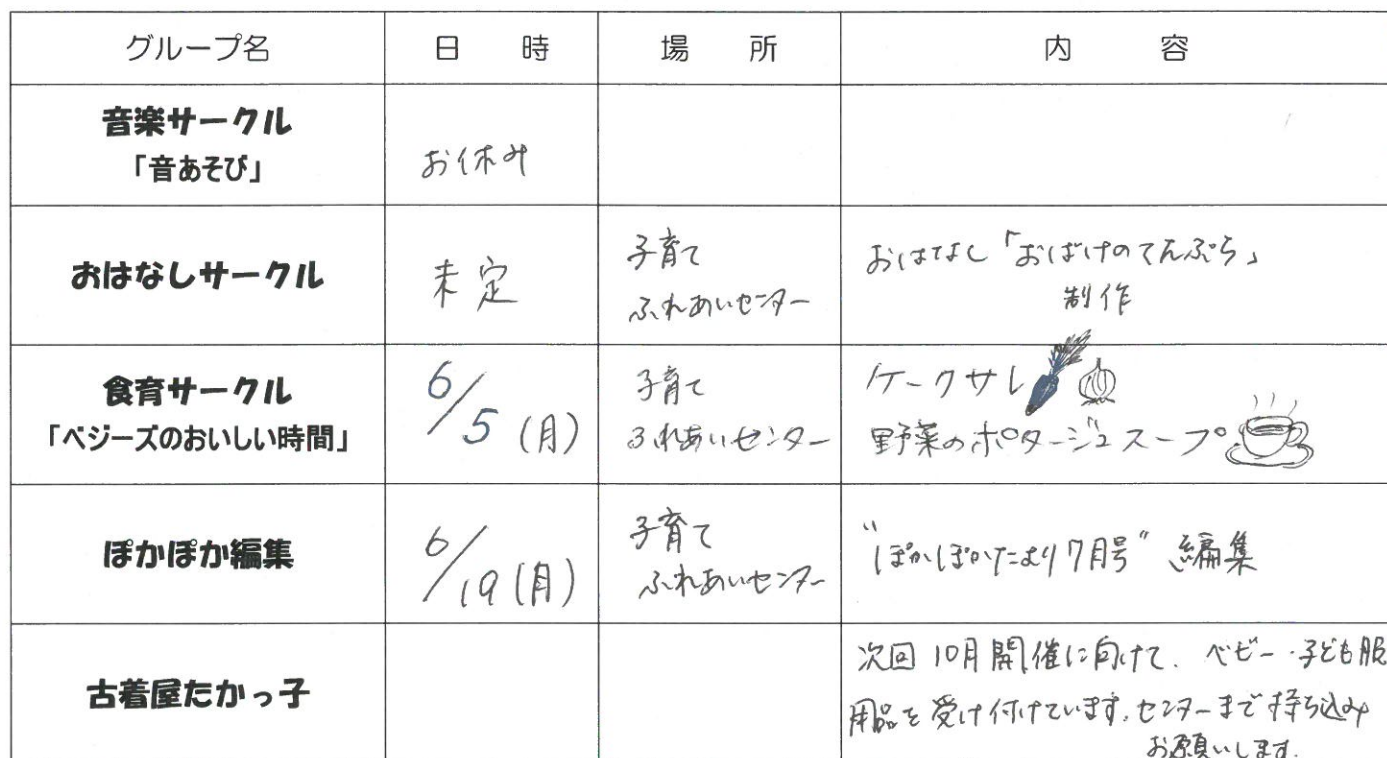 グループ名 日 時 場 所 内 容
音楽サークル
「音あそび」
お休み
おはなしサークル
未定
子育て
ふれあいセンター
おはなし「おばけのてんぷら」
制作
食育サークル
「ベジーズのおいしい時間」
6/5 (月)
子育て
ふれあいセンター
ケークサレ
野菜のポタージュスープ
ぽかぽか編集
6/19 (月)
子育て
ふれあいセンター
"ぽかぽかたより7月号" 編集
古着屋たかっ子
次回 10月開催に向けて、ベビー・子ども服
用品を受け付けています。センターまで持ち込み
お願いします。